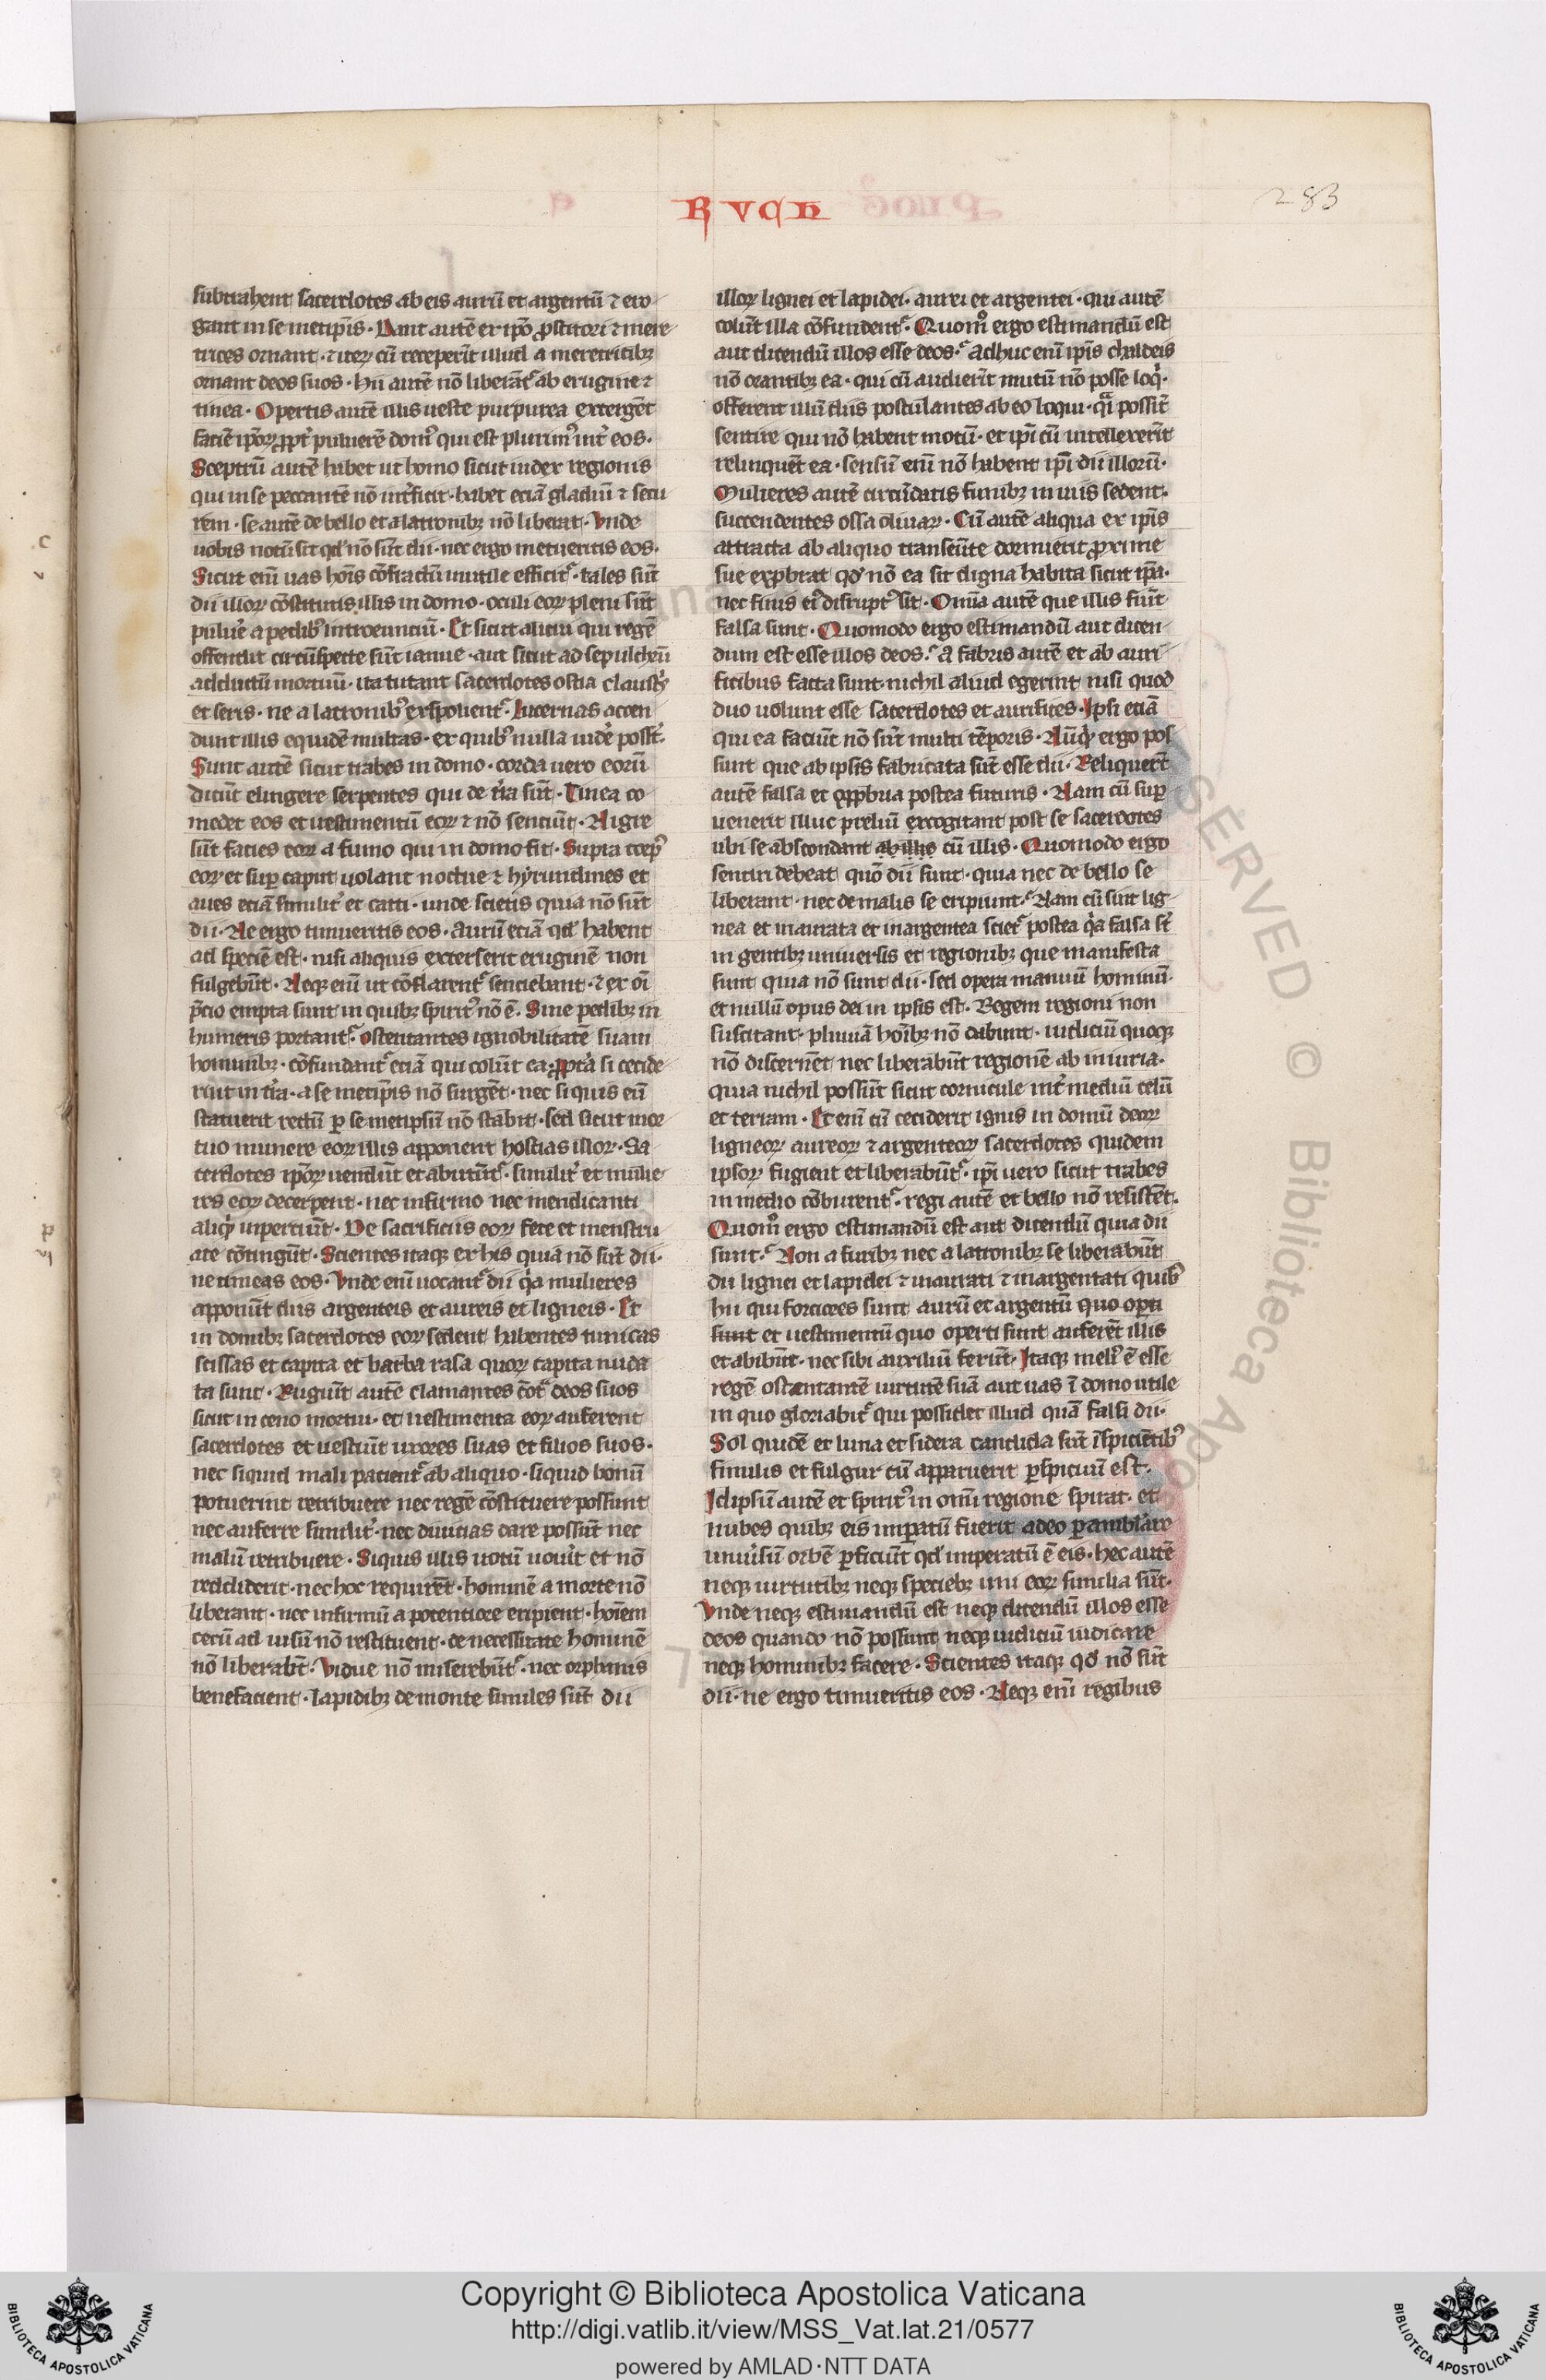 RVCH
283
subtrahent sacerdotes ab eis aurū et argentū ⁊ ero
gant in se metip̄is · Dant autē ex ip̄o ꝓstitori ⁊ mere
trices ornant · ⁊ iteꝝ cū receperīt illud a meretricibꝫ
ornant deos suos · hii autē nō liberātᷣ ab erugine ⁊
tinea · Opertis autē illis ueste purpurea extergēt
faciē ip̄oꝝ ꝓpt̓ puluerē domꝰ qui est plurimꝰ int̓ eos ·
Sceptrū autē habet ut homo sicut iudex regionis
qui in se peccantē nō int̓ficit · habet eciā gladiū ⁊ secu
rem · se autē de bello et a latronibꝫ nō liberat · Vnde
uobis notū sit qd̓ nō sūt dii · nec ergo metueritis eos ·
Sicut enī uas hōis cōfractū inutile efficitᷣ · tales sūt
dii illoꝝ cōstitutis illis in domo · oculi eoꝝ pleni sūt
puluē a pedibꝰ introeunciū · Et sicut alicui qui regē
offendit circūsepte sūt ianue · aut sicut ad sepulchrū
adductū mortuū · ita tutant sacerdotes ostia claust̓s
et seris · ne a latronibꝰ exspolientᷣ · Lucernas accen
dunt illis equidē multas · ex quibꝰ nulla uidē possūt ·
Sunt autē sicut trabes in domo · corda uero eorū
dicūt elingere serpentes qui de t̓ra sūt · Tinea co
medet eos et uestimentū eoꝝ ⁊ nō senciūt · Nigre
sūt facies eoꝝ a fumo qui in domo fit · Supra corpꝰ
eoꝝ et suꝑ caput uolant noctue ⁊ hyrundines et
aues eciā similit̓ et catti · unde scietis quia nō sūt
dii · Ne ergo timueritis eos · Aurū eciā qd̓ habent
ad speciē est · nisi aliquis exterserit eruginē non
fulgebūt · Neqꝫ enī ut cōflarentᷣ senciebant · ⁊ ex oī
p̄cio empta sunt in quibꝫ spiritꝰ nō ē · Sine pedibꝫ in
humeris portantᷣ · ostentantes ignobilitatē suam
hominibꝫ · cōfundantᷣ eciā qui colūt ea · ꝓpt̓a si cecide
rint in t̓ra · a se metip̄is nō surgēt · nec si quis eū
statuerit rectū ꝑ se metipsū nō stabit · sed sicut mor
tuo munere eoꝝ illis apponent hostias illoꝝ · Sa
cerdotes ip̄oꝝ uendūt et abutūtᷣ · similit̓ et mulie
res eoꝝ decerpent · nec infirmo nec mendicanti
aliqd̓ inpertiūt · De sacrificiis eoꝝ fete et menstru
ate cōtingūt · Scientes itaqꝫ ex his quia nō sūt dii ·
ne timeas eos · Vnde enī uocantᷣ dii q̓a mulieres
apponūt diis argenteis et aureis et ligneis · Et
in domibꝫ sacerdotes eoꝝ sedent habentes tunicas
scissas et capita et barba rasa quoꝝ capita nuda
ta sunt · Rugiūt autē clamantes cōt̓ deos suos
sicut in ceno mortui · et uestimenta eoꝝ auferent
sacerdotes et uestiūt uxores suas et filios suos ·
nec siquid mali pacientᷣ ab aliquo · siquid bonū
potuerint retribuere nec regē cōstituere possunt
nec auferre similit̓ · nec diuitias dare possūt nec
malū retribuere · Siquis illis uotū uou̓it et nō
reddiderit · nec hoc requirēt · hominē a morte nō
liberant · nec infirmū a potentiore eripient · hoīem
cecū ad uisū nō restituent · de necessitate hominē
nō liberabūt · Vidue nō miserebūtᷣ · nec orphanis
benefacient · Lapidibꝫ de monte similes sūt dii
illoꝝ lignei et lapidei · aurei et argentei · qui autē
colūt illa cōfundentᷣ · Quomͦ ergo estimandū est
aut dicendū illos esse deos · Adhuc enī ip̄is chaldeis
nō orantibꝫ ea · qui cū audierīt mutū nō posse loq̓ ·
offerent illū diis postulantes ab eo loqui · qͣi possīt
sentire qui nō habent motū · et ip̄i cū intellexerīt
relinquēt ea · sensū enī nō habent ip̄i dii illorū ·
Mulieres autē circūdatis funibꝫ in uiis sedent ·
succendentes ossa oliuaꝝ · Cū autē aliqua ex ip̄is
attracta ab aliquo transeūte dormierit ꝓxime
sue exꝓbrat qd̓ nō ea sit digna habita sicut ip̄a ·
nec funis eiꝰ disruptꝰ sit · Omīa autē que illis fiūt
falsa sunt · Quomodo ergo estimandū aut dicen
dum est esse illos deos · A fabris autē et ab auri
ficibus facta sunt · nichil aliud egerint nisi quod
duo uolunt esse sacerdotes et aurifices · Ipsi eciā
qui ea faciūt nō sūt multi tēporis · Nūqͥd ergo pos
sunt que ab ipsis fabricata sūt esse dii · Reliquerūt
autē falsa et opꝓbria postea futuris · Nam cū suꝑ
uenerit illuc preliū excogitant post se sacerdotes
ubi se abscondant ab illis cū illis · Quomodo ergo
sentiri debeat quō dii sunt · quia nec de bello se
liberant · nec de malis se eripiunt · Nam cū sint lig
nea et inaurata et inargentea scietᷣ postea q̓a falsa sūt
in gentibꝫ uniuersis et regionibꝫ que manifesta
sunt quia nō sunt dii · sed opera manuū hominū ·
et nullū opus dei in ipsis est · Regem regioni non
suscitant · pluuiā hoībꝫ nō dabunt · iudiciū quoqꝫ
nō discernēt nec liberabūt regionē ab iniuria ·
quia nichil possūt sicut cornicule int̓ mediū celū
et terram · Et enī cū ceciderit ignis in domū deoꝝ
ligneoꝝ aureoꝝ ⁊ argenteoꝝ sacerdotes quidem
ipsoꝝ fugient et liberabūtᷣ · ip̄i uero sicut trabes
in medio cōburentᷣ · regi autē et bello nō resistēt ·
Quomͦ ergo estimandū est aut dicendū quia dii
sunt · Non a furibꝫ nec a latronibꝫ se liberabūt
dii lignei et lapidei ⁊ inaurati ⁊ inargentati quibꝰ
hii qui forciores sunt aurū et argentū quo opti
sunt et uestimentū quo operti sunt auferēt illis
et abibūt · nec sibi auxiliū ferūt · Itaqꝫ meliꝰ ē esse
regē ostentantē uirtutē suā aut uas ī domo utile
in quo gloriabitᷣ qui possidet illud quā falsi dii ·
Sol quidē et luna et sidera candida sūt īspiciētibꝰ
similis et fulgur cū apparuerit ꝑspicuū est ·
Idipsū autē et spiritꝰ in omī regione spirat · et
nubes quibꝫ eis inꝑatū fuerit adeo ꝑambl̓are
uniu̓sū orbē ꝑficiūt qd̓ imperatū ē eis · hec autē
neqꝫ uirtutibꝫ neqꝫ speciebꝫ uni eoꝝ similia sūt ·
Vnde neqꝫ estimandū est neqꝫ dicendū illos esse
deos quando nō possunt neqꝫ iudiciū iudicare
neqꝫ hominibꝫ facere · Scientes itaqꝫ qd̓ nō sūt
dii · ne ergo timueritis eos · Neqꝫ enī regibus
Copyright © Biblioteca Apostolica Vaticana
http://digi.vatlib.it/view/MSS_Vat.lat.21/0577
powered by AMLAD·NTT DATA
BIBLIOTECA APOSTOLICA VATICANA
BIBLIOTECA APOSTOLICA VATICANA